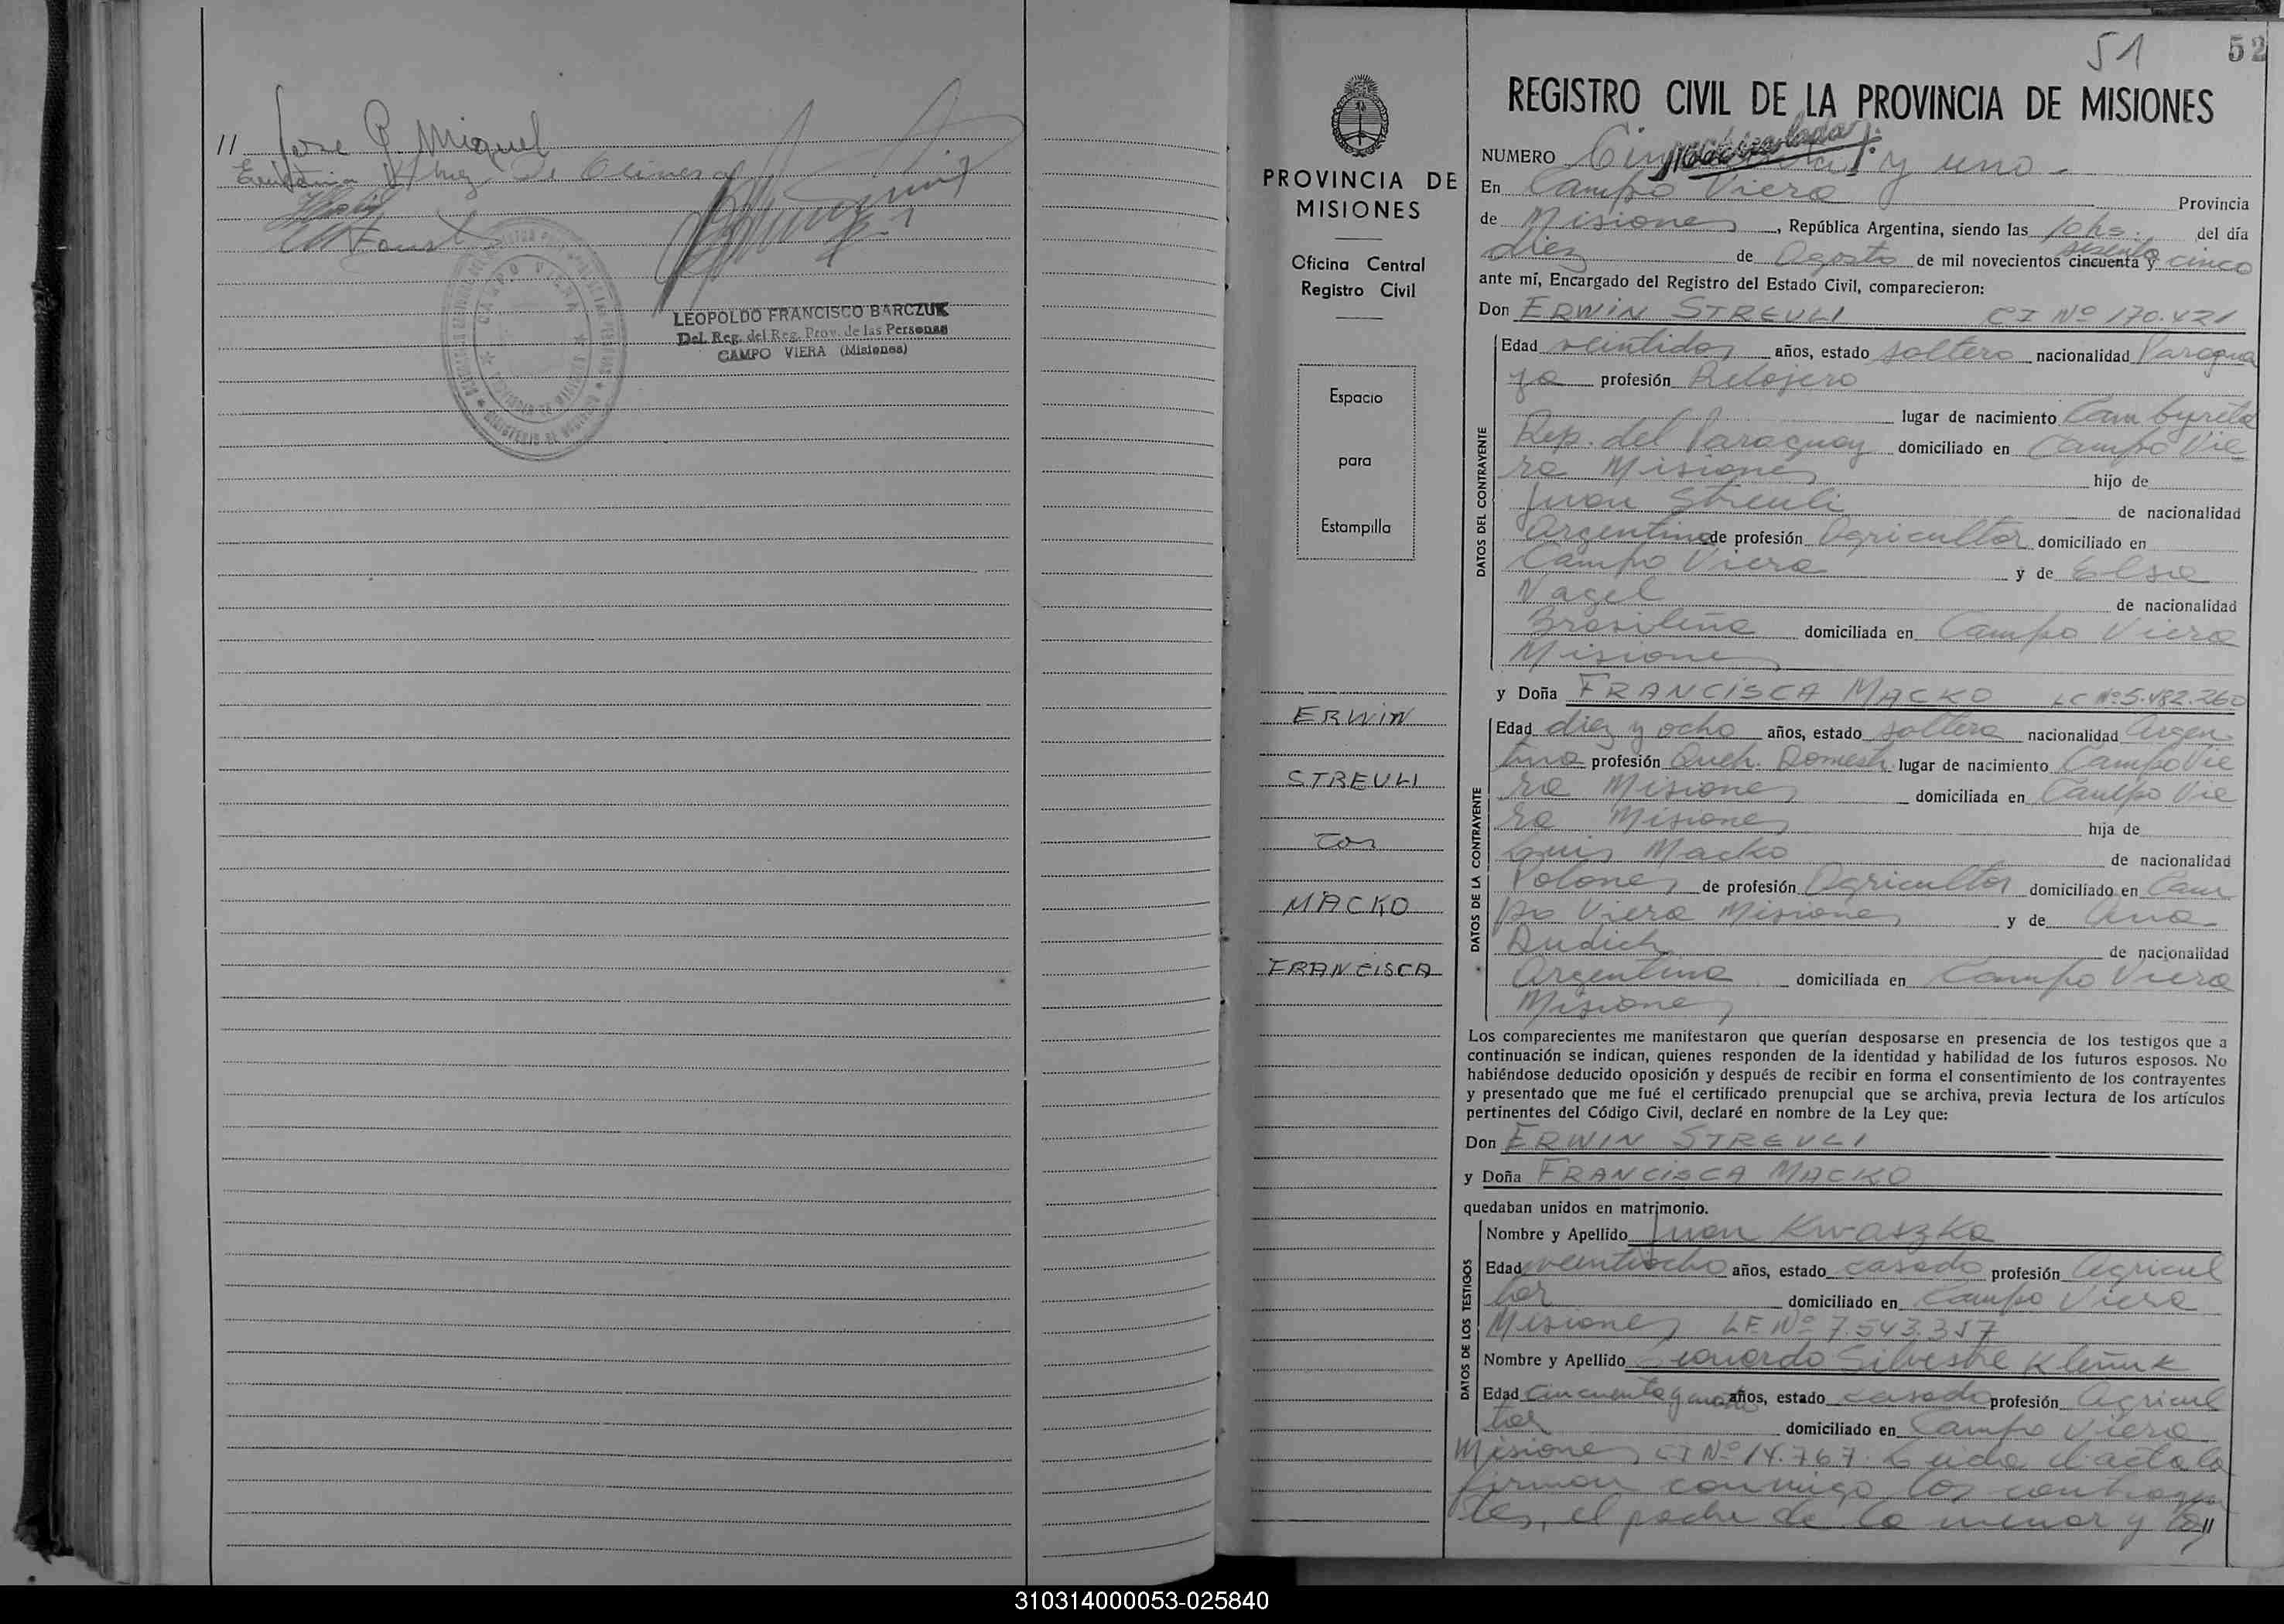 // Jose P. Miguel
de Olivera
Faust
CAMPO VIERA
LEOPOLDO FRANCISCO BARCZUK
Del. Reg. del Reg. Prov. de las Personas
CAMPO VIERA (Misiones)
51
52
PROVINCIA DE
MISIONES
Oficina Central
Registro Civil
Espacio
para
Estampilla
ERWIN
STREULI
con
MACKO
FRANCISCA
REGISTRO CIVIL DE LA PROVINCIA DE MISIONES
NUMERO Cincuenta y uno -
En Campo Viera Provincia
de Misiones, República Argentina, siendo las 10 hs. del día
sesenta
diez de Agosto de mil novecientos cincuenta y cinco
ante mí, Encargado del Registro del Estado Civil, comparecieron:
Don ERWIN STREULI CI Nº 170.421
DATOS DEL CONTRAYENTE
Edad veintidos años, estado soltero nacionalidad Paragua
ya profesión Relojero
lugar de nacimiento Cambyreta
Rep. del Paraguay domiciliado en Campo Vie
ra Misiones hijo de
Juan Streuli de nacionalidad
Argentina de profesión Agricultor domiciliado en
Campo Viera y de Elsa
Nagel de nacionalidad
Brasileña domiciliada en Campo Viera
Misiones
y Doña FRANCISCA MACKO LC Nº 5.482.260
DATOS DE LA CONTRAYENTE
Edad diez y ocho años, estado soltera nacionalidad Argen
tina profesión Queh. Domest. lugar de nacimiento Campo Vie
ra Misiones domiciliada en Campo Vie
ra Misiones hija de
Luis Macko de nacionalidad
Polones de profesión Agricultor domiciliado en Cam
po Viera Misiones y de Ana
Dudich de nacionalidad
Argentina domiciliada en Campo Viera
Misiones
Los comparecientes me manifestaron que querían desposarse en presencia de los testigos que a
continuación se indican, quienes responden de la identidad y habilidad de los futuros esposos. No
habiéndose deducido oposición y después de recibir en forma el consentimiento de los contrayentes
y presentado que me fué el certificado prenupcial que se archiva, previa lectura de los artículos
pertinentes del Código Civil, declaré en nombre de la Ley que:
Don ERWIN STREULI
y Doña FRANCISCA MACKO
quedaban unidos en matrimonio.
DATOS DE LOS TESTIGOS
Nombre y Apellido Juan Kwaszka
Edad veintiocho años, estado casado profesión Agricul
tor domiciliado en Campo Viera
Misiones LE Nº 7.543.357
Nombre y Apellido Eduardo Silvestre Kleñuk
Edad Cincuenta y cuatro años, estado casado profesión Agricul
tor domiciliado en Campo Viera
Misiones CI Nº 14.767. Leida el acta la
firman conmigo los contrayen
tes, el padre de la menor y los //
310314000053-025840